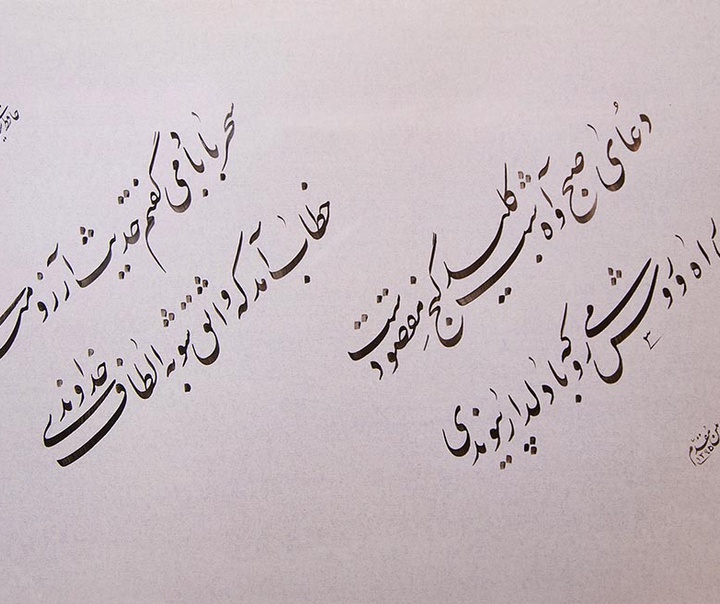 سحر با باد می گفتم حدیث آرزو
خطاب آمد که واثق شو به الطاف خداوندی
دعای صبح و آه شب کلید گنج مقصود است
راه و روش می رو که با دلدار پیوندی
۳